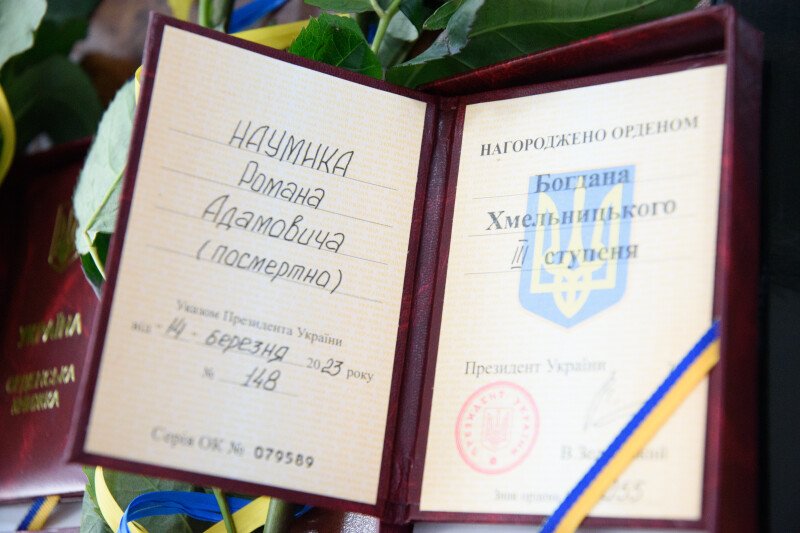 НАУМИКА
Романа
Адамовича
(посмертно)
Указом Президента України
від -14- березня 2023 року
№ 148
Серія ОК № 079589
НАГОРОДЖЕНО ОРДЕНОМ
Богдана
Хмельницького
III ступеня
Президент України
ПРЕЗИДЕНТ УКРАЇНИ
В.Зеленський
Знак ордена
УКРАЇНА
ОРДЕНСЬКА
КНИЖКА